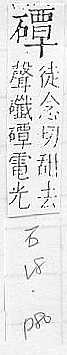 磹
徒念切甛去
聲䃸磹電光
石
18.
p80